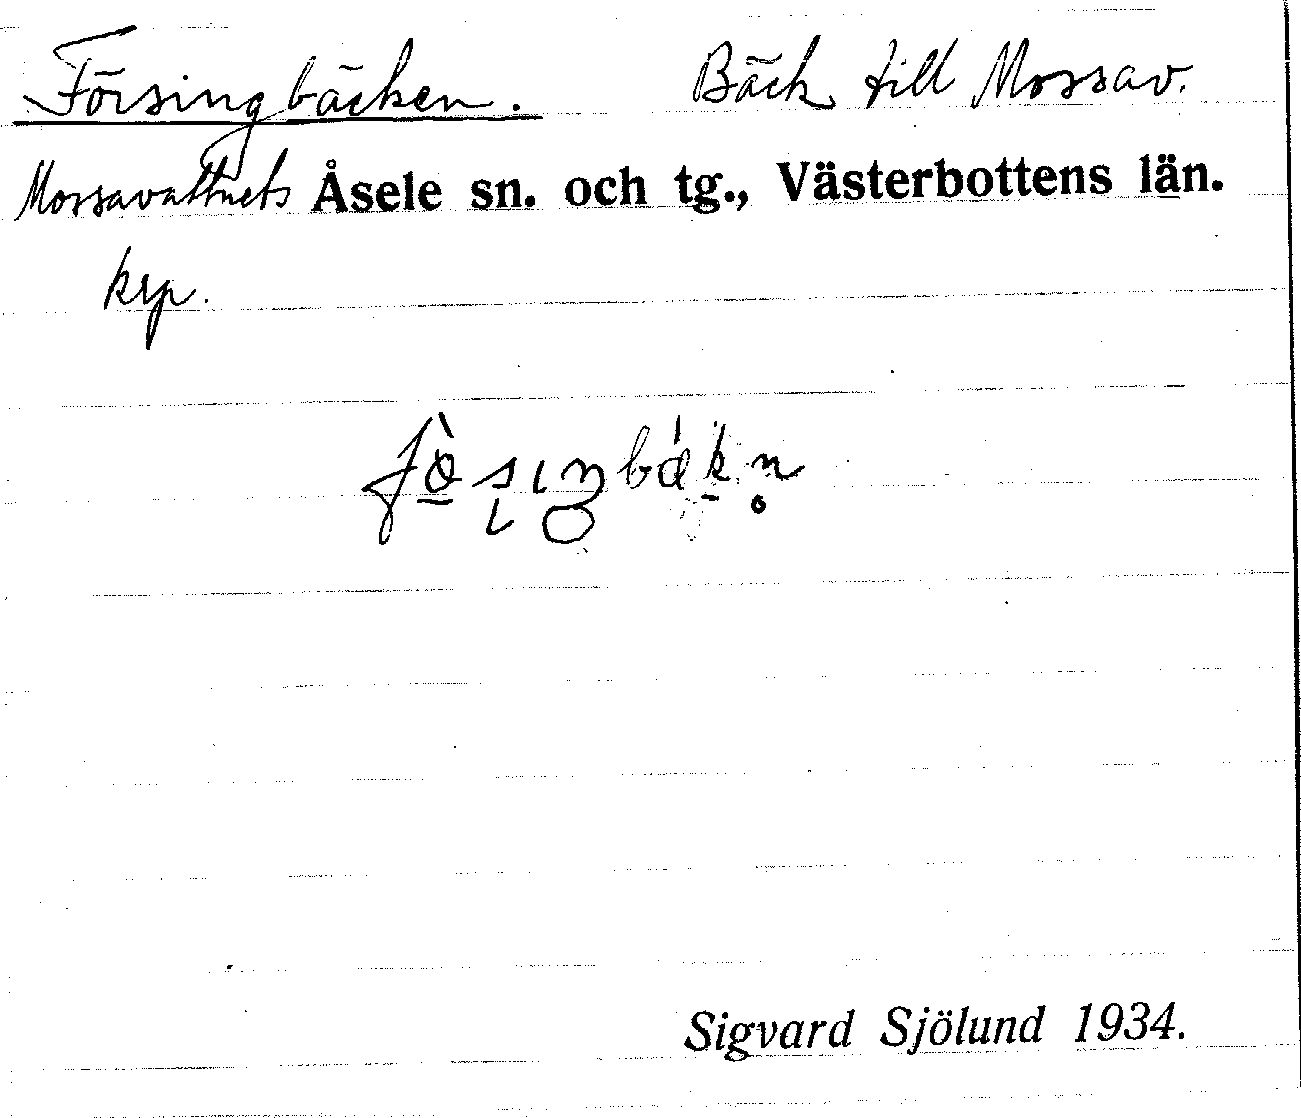 Försingbäcken. Bäck till Mossav.
Mossavattnets Åsele sn. och tg., Västerbottens län.
krp.
Sigvard Sjölund 1934.